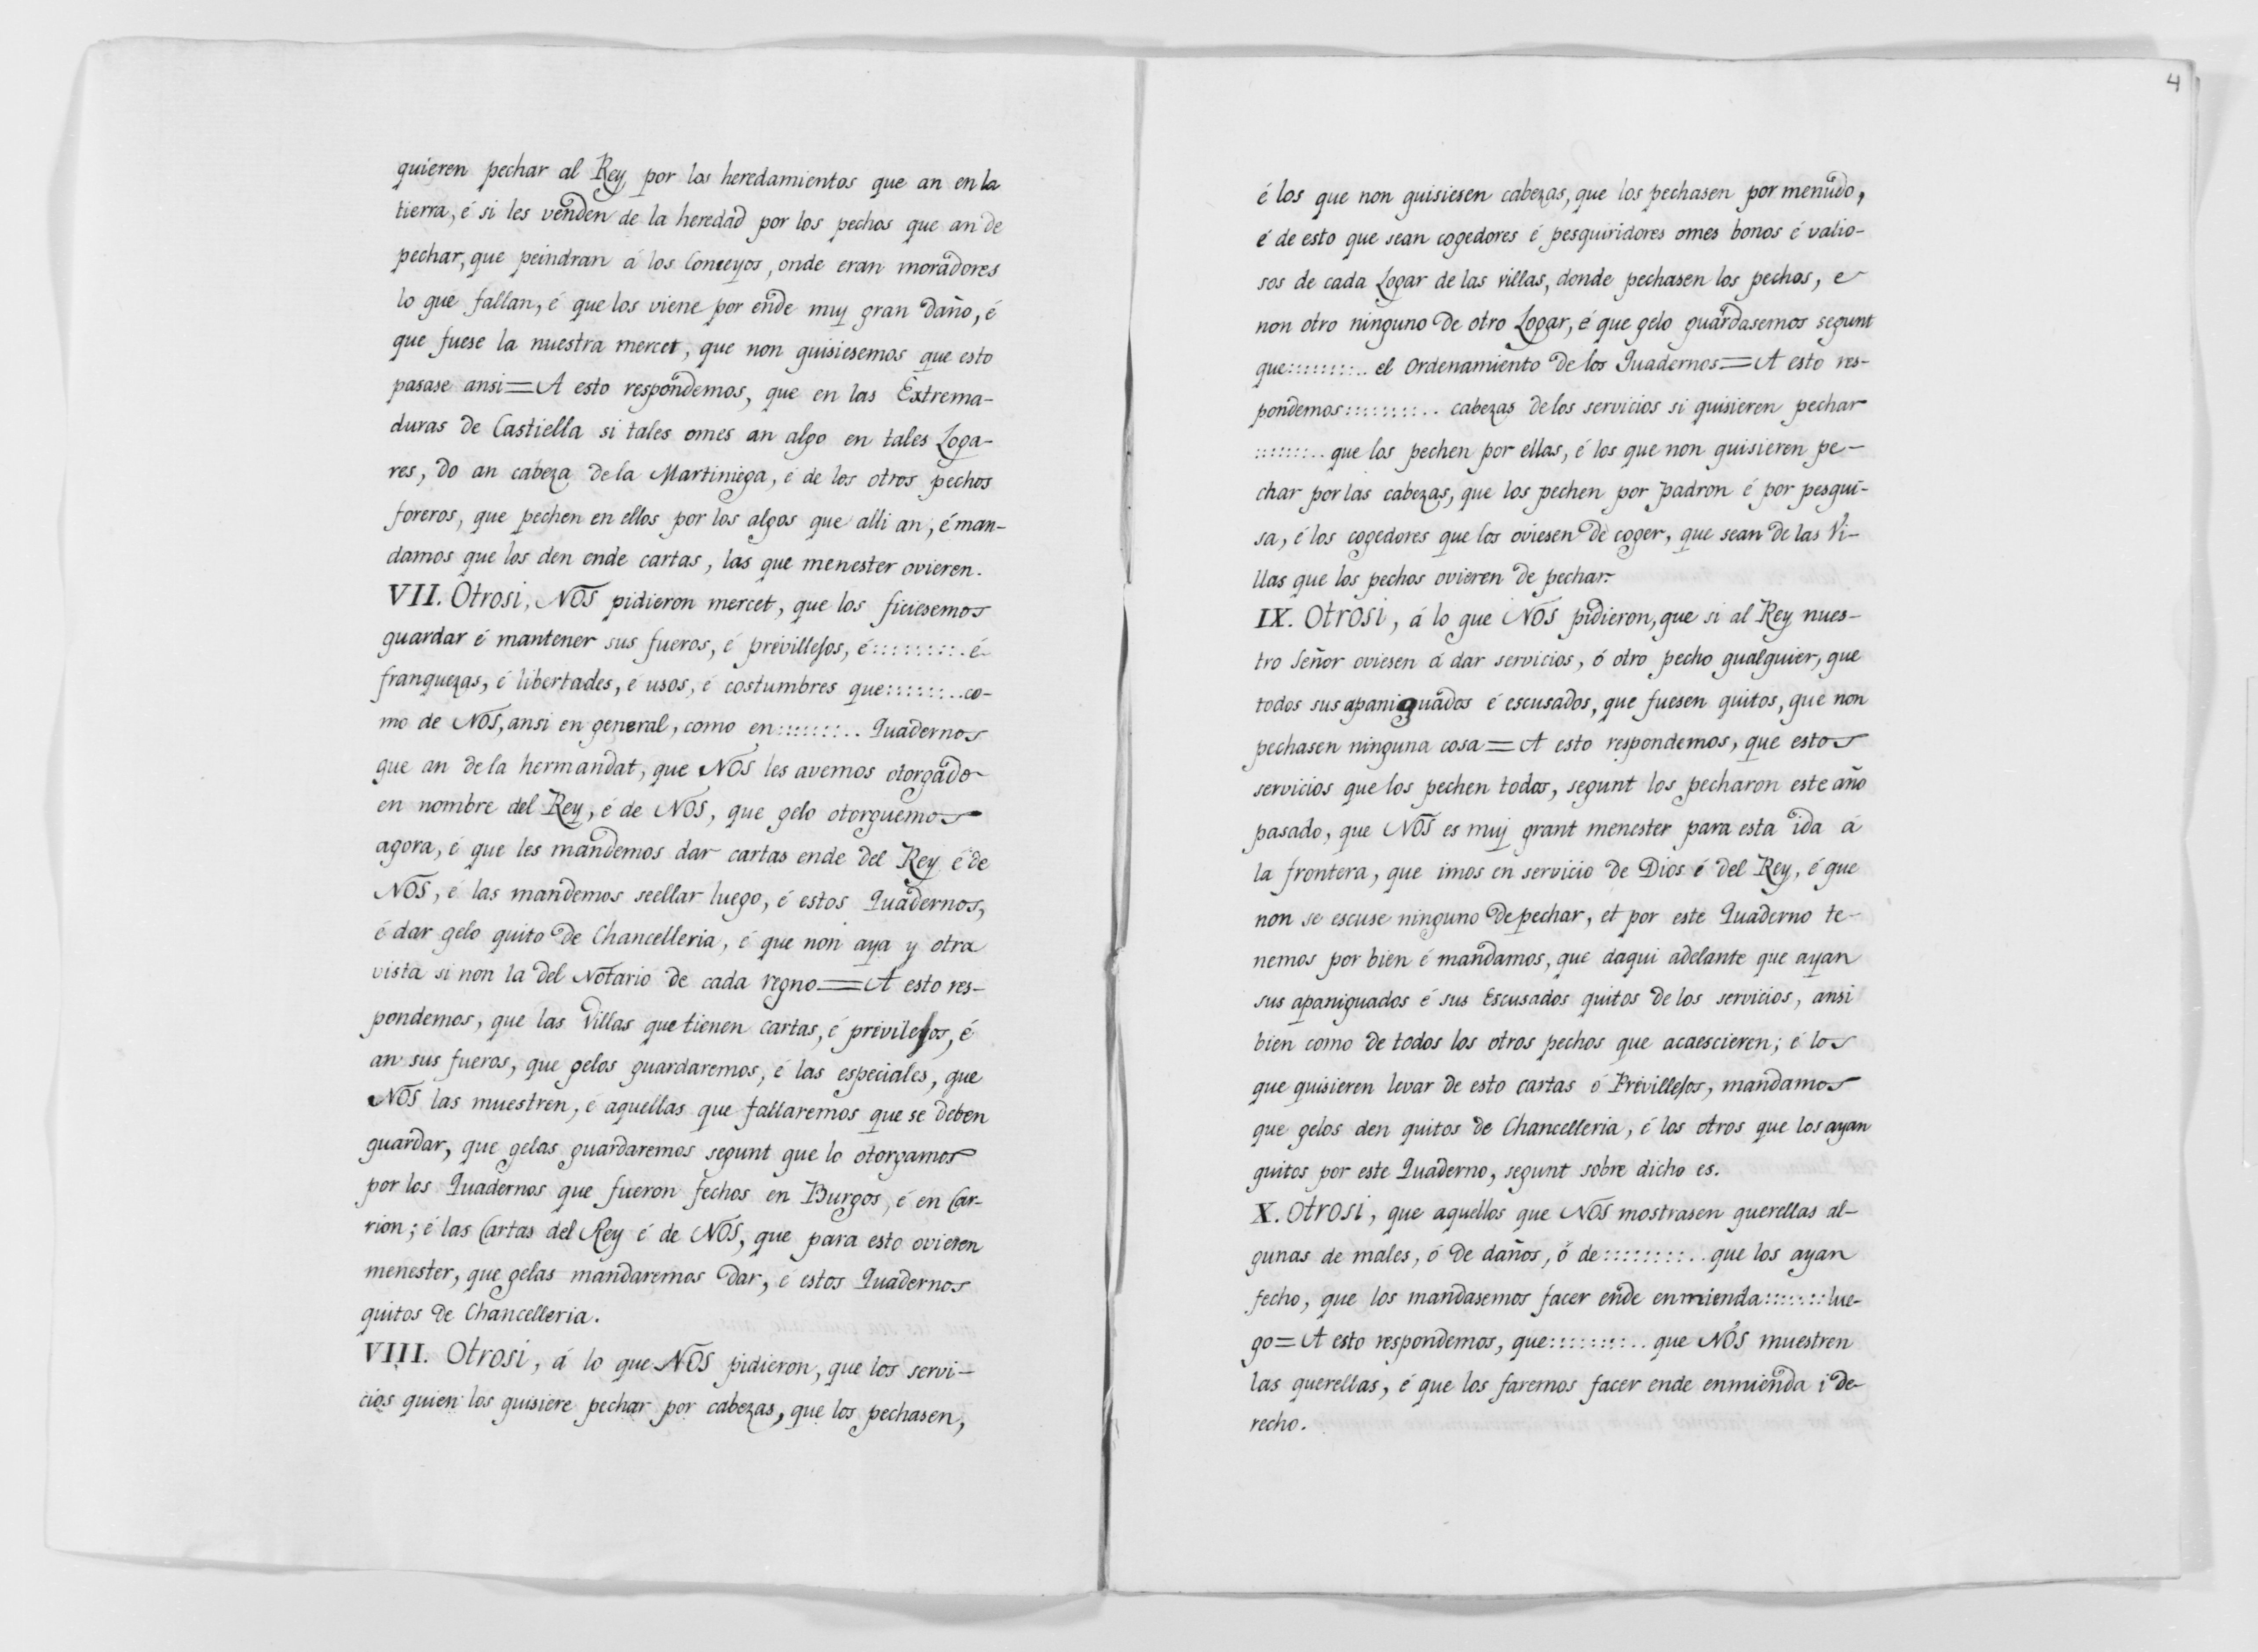 quieren pechar al Rey por los heredamientos que an en la
tierra, é si les venden de la heredad por los pechos que an de
pechar, que peindran á los Conceyos, onde eran moradores
lo que fallan, é que los viene por ende muy gran daño, é
que fuese la nuestra mercet, que non quisiesemos que esto
pasase ansi=A esto respondemos, que en las Extrema-
duras de Castiella si tales omes an algo en tales Loga-
res, do an cabeza de la Martiniega, é de los otros pechos
foreros, que pechen en ellos por los algos que alli an, é man-
damos que los den ende cartas, las que menester ovieren.
VII. Otrosi, NOS pidieron mercet, que los ficiesemos
guardar é mantener sus fueros, é previllejos, é:::::::::. é
franquezas, é libertades, é usos, é costumbres que:::::::..co-
mo de NOS, ansi en general, como en:::::::.. Quadernos
que an de la hermandat, que NOS les avemos otorgado
en nombre del Rey, é de NOS, que gelo otorguemos
agora, é que les mandemos dar cartas ende del Rey é de
NOS, é las mandemos seellar luego, é estos Quadernos,
é dar gelo quito de Chancelleria, é que non aya y otra
vista si non la del Notario de cada regno=A esto res-
pondemos, que las Villas que tienen cartas, é privilejos, é
an sus fueros, que gelos guardaremos, é las especiales, que
NOS las muestren, é aquellas que fallaremos que se deben
guardar, que gelas guardaremos segunt que lo otorgamos
por los Quadernos que fueron fechos en Burgos, é en Car-
rion; é las Cartas del Rey é de NOS, que para esto ovieren
menester, que gelas mandaremos dar, é estos Quadernos
quitos de Chancelleria.
VIII. Otrosi, á lo que NOS pidieron, que los servi-
cios quien los quisiere pechar por cabezas, que los pechasen,
4
é los que non quisiesen cabezas, que los pechasen por menudo,
é de esto que sean cogedores é pesquiridores omes bonos é valio-
sos de cada Logar de las villas, donde pechasen los pechos, e
non otro ninguno de otro Logar, é que gelo guardasemos segunt
que::::::::.. el Ordenamiento de los Quadernos=A esto res-
pondemos::::::::.. cabezas de los servicios si quisieren pechar
:::::::.. que los pechen por ellas, é los que non quisieren pe-
char por las cabezas, que los pechen por padron é por pesqui-
sa, é los cogedores que los oviesen de coger, que sean de las Vi-
llas que los pechos ovieren de pechar.
IX. Otrosi, á lo que NOS pidieron, que si al Rey nues-
tro Señor oviesen á dar servicios, ó otro pecho qualquier, que
todos sus apaniguados é escusados, que fuesen quitos, que non
pechasen ninguna cosa=A esto respondemos, que estos
servicios que los pechen todos, segunt los pecharon este año
pasado, que NOS es muy grant menester para esta ida á
la frontera, que imos en servicio de Dios é del Rey, é que
non se escuse ninguno de pechar, et por este Quaderno te-
nemos por bien é mandamos, que daqui adelante que ayan
sus apaniguados é sus Escusados quitos de los servicios, ansi
bien como de todos los otros pechos que acaescieren; é los
que quisieren levar de esto cartas ó Previllejos, mandamos
que gelos den quitos de Chancelleria, é los otros que los ayan
quitos por este Quaderno, segunt sobre dicho es.
X. Otrosi, que aquellos que NOS mostrasen querellas al-
gunas de males, ó de daños, ó de::::::::.. que los ayan
fecho, que los mandasemos facer ende enmienda:::::::lue-
go=A esto respondemos, que::::::::.. que NOS muestren
las querellas, é que los faremos facer ende enmienda i de-
recho.